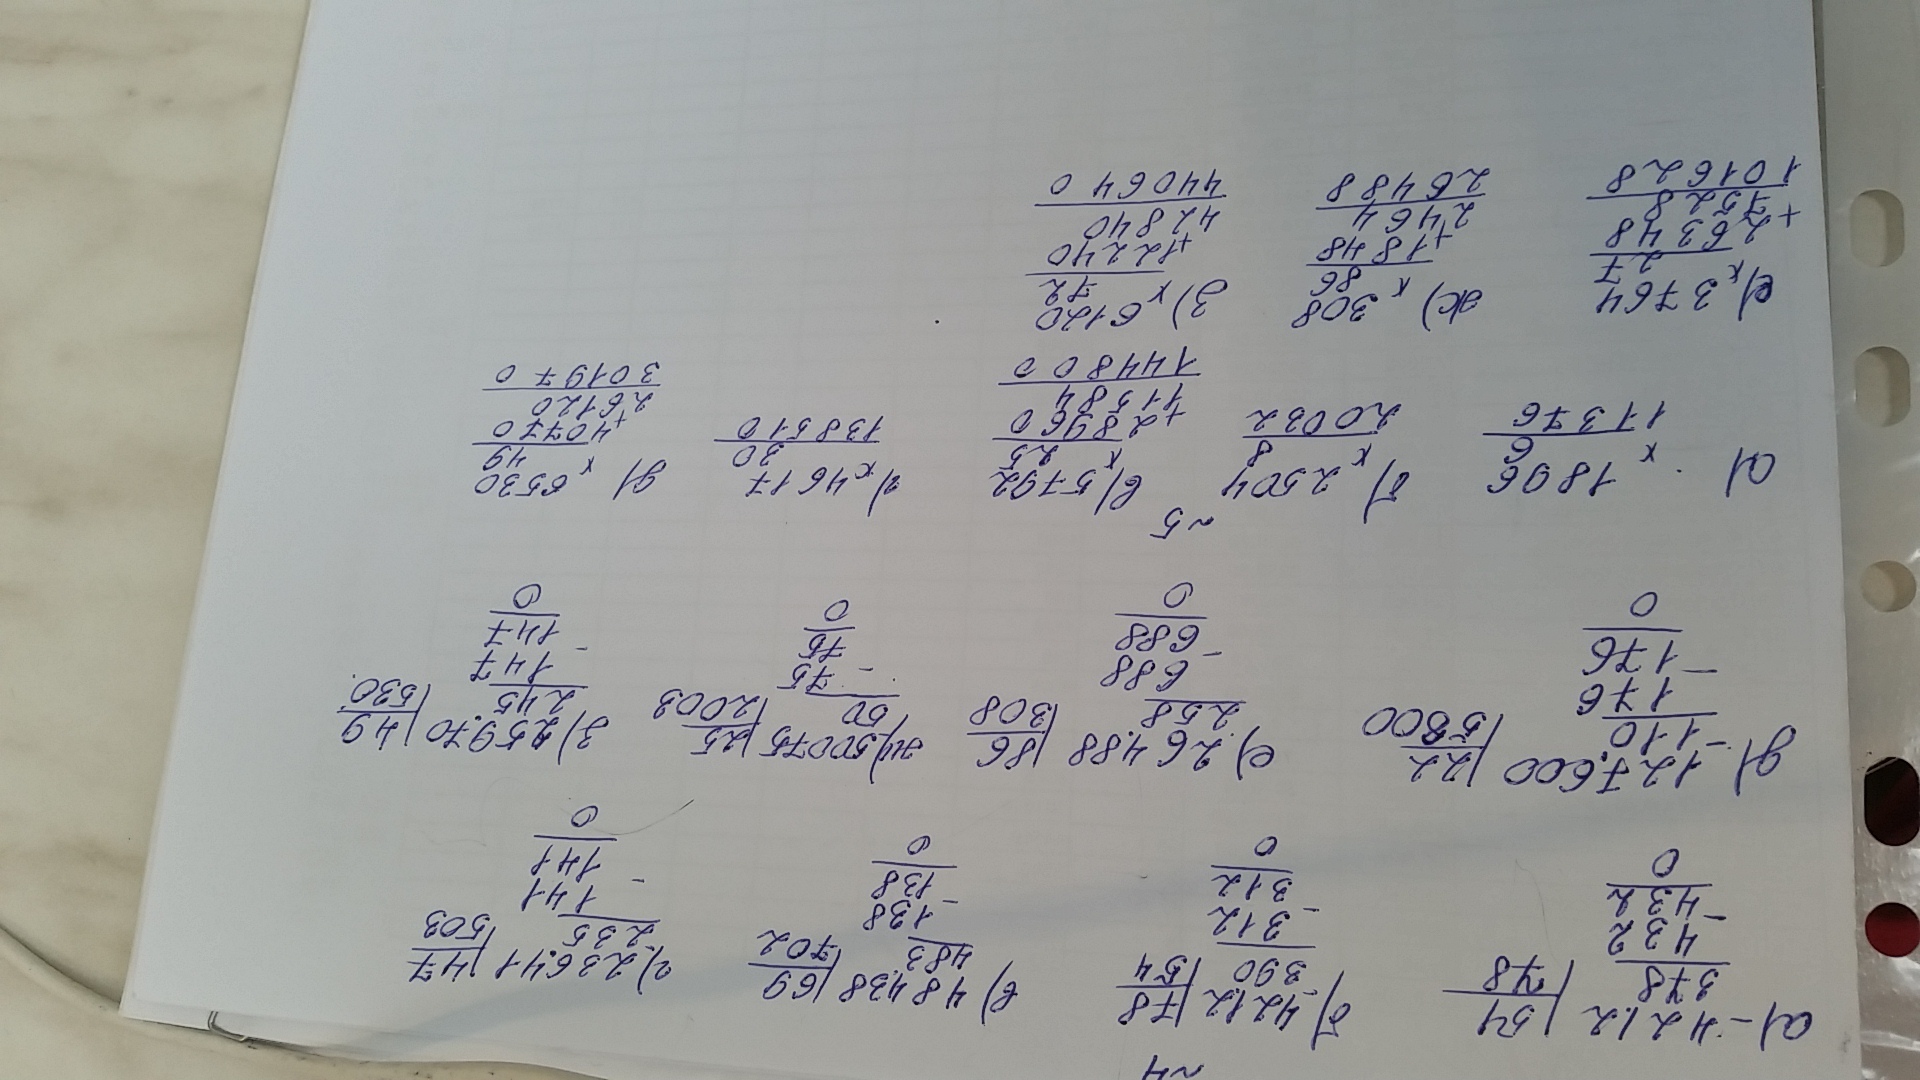 ~4
а) - 4212 | 54 б) - 4212 | 78 в) 48438 | 69 г) 23641 | 47
378 78 390 54 483 702 235 503
432 312 138 141
- 432 - 312 - 138 - 141
0 0 0 0
д) 127600 | 22 е) 26488 | 86 ж) 50075 | 25 з) 25970 | 49
- 110 5800 258 308 50 2003 245 530
176 688 75 147
- 176 - 688 - 75 - 147
0 0 0 0
~5
а) 1896 б) 2504 в) 5792 г) 4617 д) 6530
x 6 x 8 x 25 x 30 x 49
11376 20032 + 28960 138510 + 40770
11584 26120
144800 301970
е) 3764 ж) 308 з) 6120
x 27 x 86 x 72
+ 26348 + 1848 + 12240
7528 2464 42840
101628 26488 440640